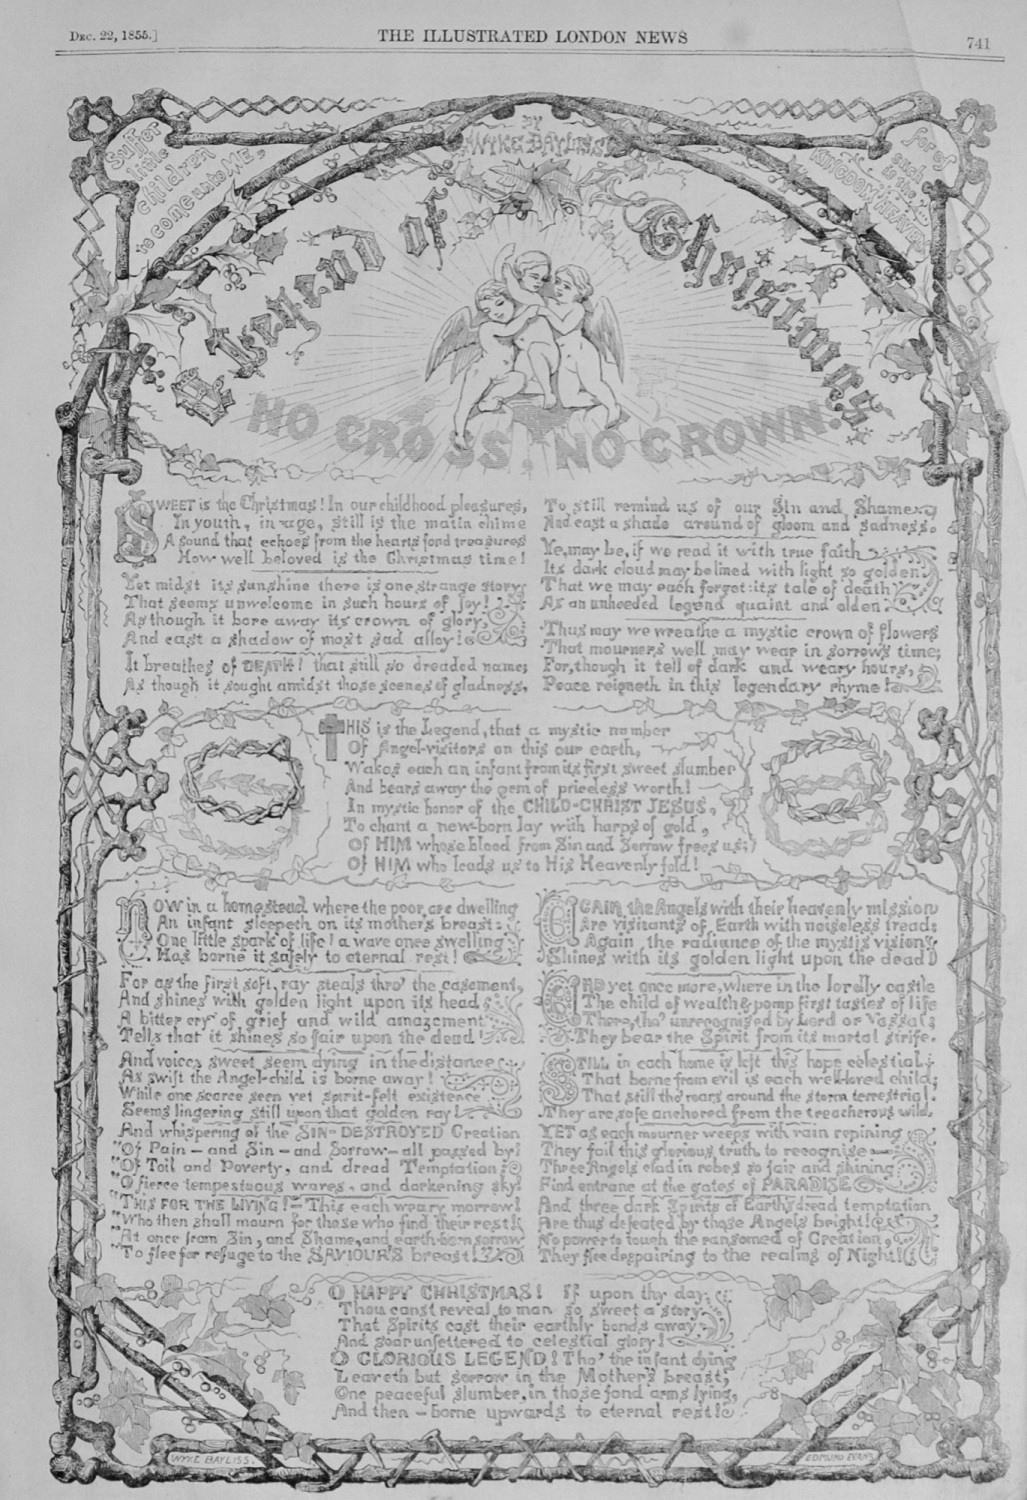 DEC. 22, 1855.]
THE ILLUSTRATED LONDON NEWS
741
Suffer
little
children
to come unto ME,
for of
such
is the
KINGDOM of HEAVEN
BY
WYKE BAYLISS
A Legend of Christmas
NO CROSS, NO CROWN.
SWEET is the Christmas! In our childhood pleasures,
In youth, in age, still is the matin chime
A sound that echoes from the hearts fond treasures
How well beloved is the Christmas time!
Yet midst its sunshine there is one strange story;
That seems unwelcome in such hours of joy!
As though it bore away its crown of glory,
And cast a shadow of most sad alloy!
It breathes of DEATH! that still so dreaded name;
As though it sought amidst those scenes of gladness,
To still remind us of our Sin and Shame
And cast a shade around of gloom and sadness.
Ye, may be, if we read it with true faith
Its dark cloud may be lined with light so golden
That we may each forget its tale of death
As an unheeded legend quaint and olden
Thus may we wreathe a mystic crown of flowers
That mourners well may wear in sorrow's time;
For, though it tell of dark and weary hours,
Peace reigneth in this legendary rhyme!
THIS is the Legend, that a mystic number
Of Angel-visitors on this our earth,
Wakes each an infant from its first sweet slumber
And bears away the gem of priceless worth!
In mystic honor of the CHILD-CHRIST JESUS,
To chant a new-born lay with harps of gold,
Of HIM whose blood from Sin and Sorrow frees us;
Of HIM who leads us to His Heavenly fold!
NOW in a homestead where the poor are dwelling
An infant sleepeth on its mothers breast:
One little spark of life! a wave once swelling
Has borne it safely to eternal rest!
For as the first soft ray steals thro' the casement,
And shines with golden light upon its head
A bitter cry of grief and wild amazement
Tells that it shines so fair upon the dead!
And voices sweet seem dying in the distance
As swift the Angel-child is borne away!
While one scarce seen yet spirit-felt existence
Seems lingering still upon that golden ray!
And whispering of the SIN-DESTROYED Creation
"Of Pain — and Sin — and Sorrow — all passed by!
"Of Toil and Poverty, and dread Temptation
"O'fierce tempestuous waves, and darkening sky!
"THIS FOR THE LIVING! — This each weary morrow!
"Who then shall mourn for those who find their rest!
"At once from Sin, and Shame, and earth-born sorrow
"To flee for refuge to the SAVIOUR'S breast!
AGAIN, the Angels with their heavenly mission
Are visitants of Earth with noiseless tread:
Again, the radiance of the mystic vision
Shines with its golden light upon the dead
AND yet once more, where in the lordly castle
The child of wealth & pomp first tastes of life
There, tho' unrecognised by Lord or Vassal;
They bear the Spirit from its mortal strife.
STILL in each home is left this hope celestial;
That borne from evil is each well-loved child;
That still tho' roars around the storm terrestrial.
They are safe anchored from the treacherous wild.
YET as each mourner weeps with vain repining
They fail this glorious truth to recognise —
Three Angels clad in robes so fair and shining
Find entrance at the gates of PARADISE
And three dark Spirits of Earth's dread temptation
Are thus defeated by those Angels bright!
No power to touch the ransomed of Creation,
They flee despairing to the realms of Night!
O HAPPY CHRISTMAS! If upon thy day;
Thou canst reveal to man so sweet a story
That Spirits cast their earthly bonds away
And soar unfettered to celestial glory!
O GLORIOUS LEGEND! Tho' the infant dying
Leaveth but sorrow in the Mother's breast;
One peaceful slumber, in those fond arms lying,
And then — borne upwards to eternal rest!
WYKE BAYLISS.
EDMUND EVANS